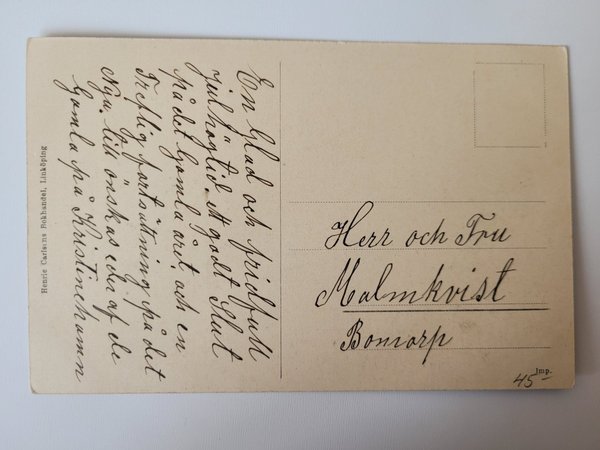 En Glad och fridfull
julhögtid ett godt Slut
på det Gamla året och en
Treflig fortsättning på det
Nya, till önskas eder af de
Gamla på Kristinehamn
Herr och Fru
Malmkvist
Bomarp
Henric Carlsons Bokhandel, Linköping
Imp.
45-